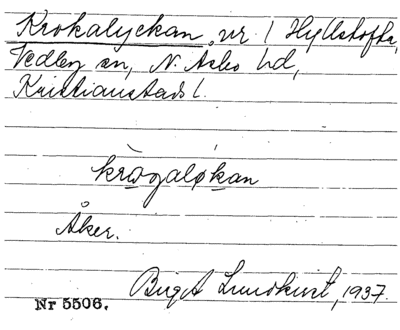 Krokalyckan, nr 1 Hyllstofta,
Vedby sn, N. Åsbo hd,
Kristianstads l.
krågaløkan
Åker.
Birgit Lundkvist, 1937.
Nr 5506.